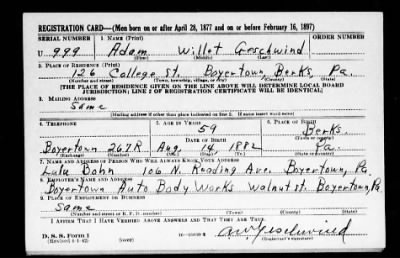 REGISTRATION CARD—(Men born on or after April 28, 1877 and on or before February 16, 1897)
SERIAL NUMBER 1. NAME (Print) ORDER NUMBER
U 999 Adam Willet Geschwind
(First) (Middle) (Last)
2. PLACE OF RESIDENCE (Print)
126 College St. Boyertown, Berks, Pa.
(Number and street) (Town, township, village, or city) (County) (State)
[THE PLACE OF RESIDENCE GIVEN ON THE LINE ABOVE WILL DETERMINE LOCAL BOARD
JURISDICTION; LINE 2 OF REGISTRATION CERTIFICATE WILL BE IDENTICAL]
3. MAILING ADDRESS
Same
(Mailing address if other than place indicated on line 2. If same insert word same)
4. TELEPHONE 5. AGE IN YEARS 6. PLACE OF BIRTH
59 Berks.
DATE OF BIRTH (Town or county)
Boyertown 267R Aug. 14 1882 Pa.
(Exchange) (Number) (Mo.) (Day) (Yr.) (State or country)
7. NAME AND ADDRESS OF PERSON WHO WILL ALWAYS KNOW YOUR ADDRESS
Lulu Bohn 106 N. Reading Ave. Boyertown, Pa.
8. EMPLOYER'S NAME AND ADDRESS
Boyertown Auto Body Works Walnut St. Boyertown, Pa.
9. PLACE OF EMPLOYMENT OR BUSINESS
Same
(Number and street or R. F. D. number) (Town) (County) (State)
I AFFIRM THAT I HAVE VERIFIED ABOVE ANSWERS AND THAT THEY ARE TRUE.
D. S. S. Form 1
(Revised 4-1-42) (over)
A W Geschwind
(Registrant's signature)